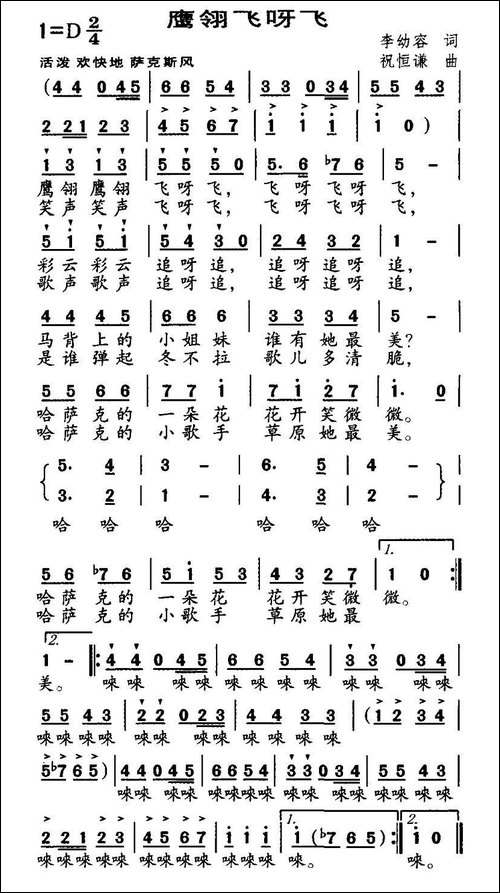 鹰翎飞呀飞
1=D 2/4
李幼容 词
活泼 欢快地 萨克斯风
祝恒谦 曲
(4 4 0 4 5 | 6 6 5 4 | 3 3 0 3 4 | 5 5 4 3
2 2 1 2 3 | 4 5 6 7 | i i i | i 0 )
1 3 1 3 | 5 5 5 0 | 5. 6 ♭7 6 | 5 - |
鹰翎鹰翎 飞呀飞, 飞呀飞呀 飞,
笑声笑声 飞呀飞, 飞呀飞呀 飞,
5 i 5 i | 5 4 3 0 | 2 4 3 2 | 1 - |
彩云彩云 追呀追, 追呀追呀 追,
歌声歌声 追呀追, 追呀追呀 追,
4 4 4 5 | 6 6 6 | 3 3 3 4 | 5 - |
马背上的 小姐妹 谁有她最 美?
是谁弹起 冬不拉 歌儿多清 脆,
5 5 6 6 | 7 7 i | 7 i 2 7 | i. 0
哈萨克的 一朵花 花开笑微 微。
哈萨克的 小歌手 草原她最 美。
5. 4 | 3 - | 6. 5 | 4 -
3. 2 | 1 - | 4. 3 | 2 -
哈 哈 哈 哈 哈 哈
1.
5 6 ♭7 6 | 5 i 5 3 | 4 3 2 7 | 1 0 :‖
哈萨克的 一朵花 花开笑微 微。
哈萨克的 小歌手 草原她最
2.
1 - ‖: 4 4 0 4 5 | 6 6 5 4 | 3 3 0 3 4 |
美。 唻唻 唻唻 唻唻唻唻 唻唻 唻唻
5 5 4 3 | 2 2 0 2 3 | 4 4 3 | (1 2 3 4
唻唻唻唻 唻唻 唻唻 唻唻唻
5 ♭7 6 5) | 4 4 0 4 5 | 6 6 5 4 | 3 3 0 3 4 | 5 5 4 3
唻唻 唻唻 唻唻唻唻 唻唻 唻唻 唻唻唻唻
1. 2.
2 2 1 2 3 | 4 5 6 7 | i i i | i (♭7 6 5) :‖ i 0
唻唻唻唻唻 唻唻唻唻 唻唻唻 唻。 唻。